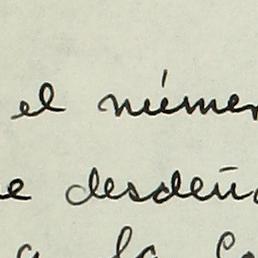 el númer
e desdeñ
a la